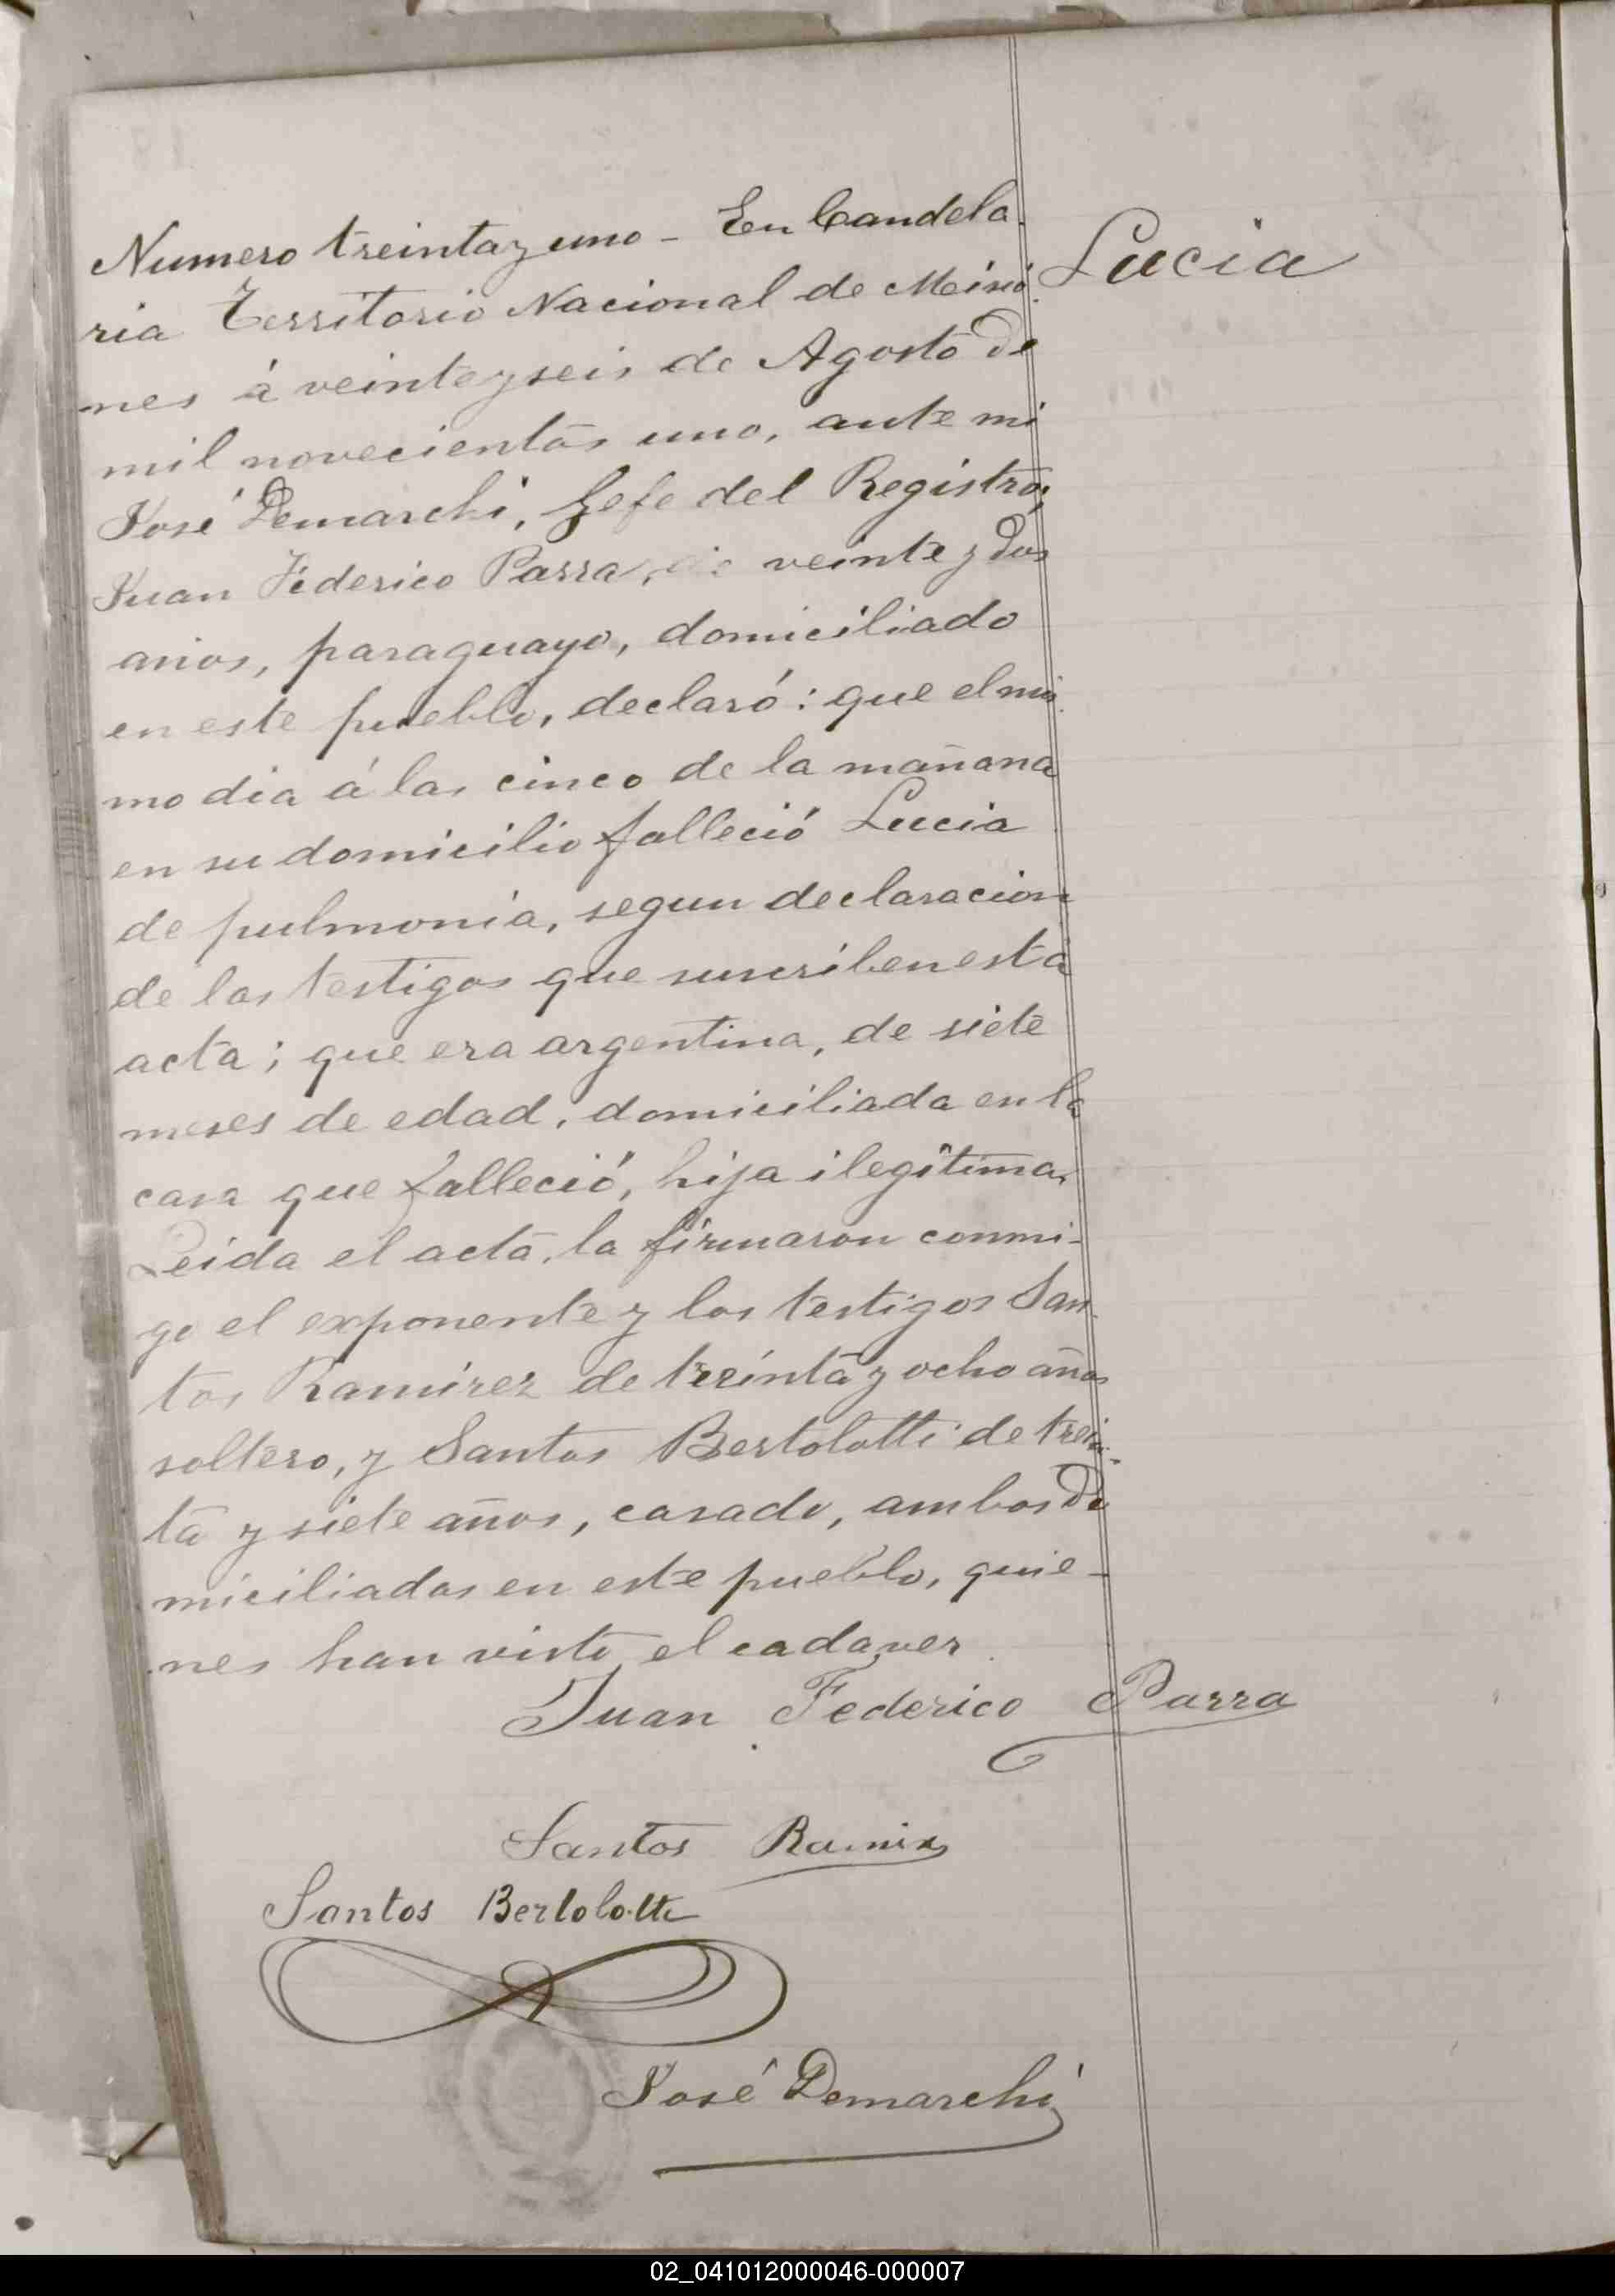 Numero treinta y uno - En Candela
Lucia
ria Territorio Nacional de Misio
nes á veinte y seis de Agosto de
mil novecientos uno, ante mi
José Demarchi, Gefe del Registro,
Juan Federico Parra, de veinte y dos
años, paraguayo, domiciliado
en este pueblo, declaró: que el mis
mo dia á las cinco de la mañana
en su domicilio falleció Lucia
de pulmonia, segun declaracion
de los testigos que suscriben esta
acta; que era argentina, de siete
meses de edad, domiciliada en la
casa que falleció, hija ilegitima.
Leida el acta, la firmaron conmi-
go el exponente y los testigos San-
tos Ramirez de treinta y ocho años
soltero, y Santos Bertolotti de trein-
ta y siete años, casado, ambos do
miciliados en este pueblo, quie-
nes han visto el cadaver
Juan Federico Parra
Santos Ramirez
Santos Bertolotti
José Demarchi
02_041012000046-000007